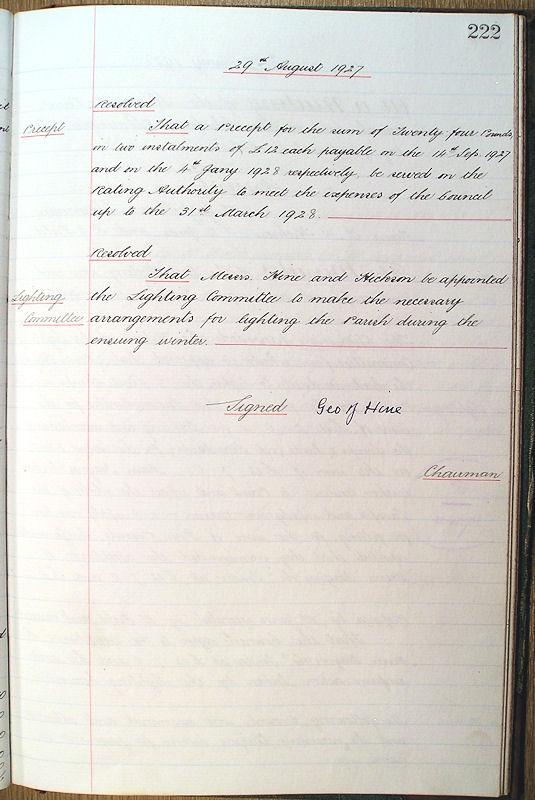 222
29th August 1927
Resolved
Precept
That a Precept for the sum of Twenty four Pounds,
in two instalments of £12 each payable on the 14th Sep. 1927
and on the 4th Jany 1928 respectively, be served on the
Rating Authority to meet the expenses of the Council
up to the 31st March 1928.
Resolved
That Messrs. Hine and Hickson be appointed
Lighting
Committee
the Lighting Committee to make the necessary
arrangements for lighting the Parish during the
ensuing winter.
Signed Geo Hine
Chairman